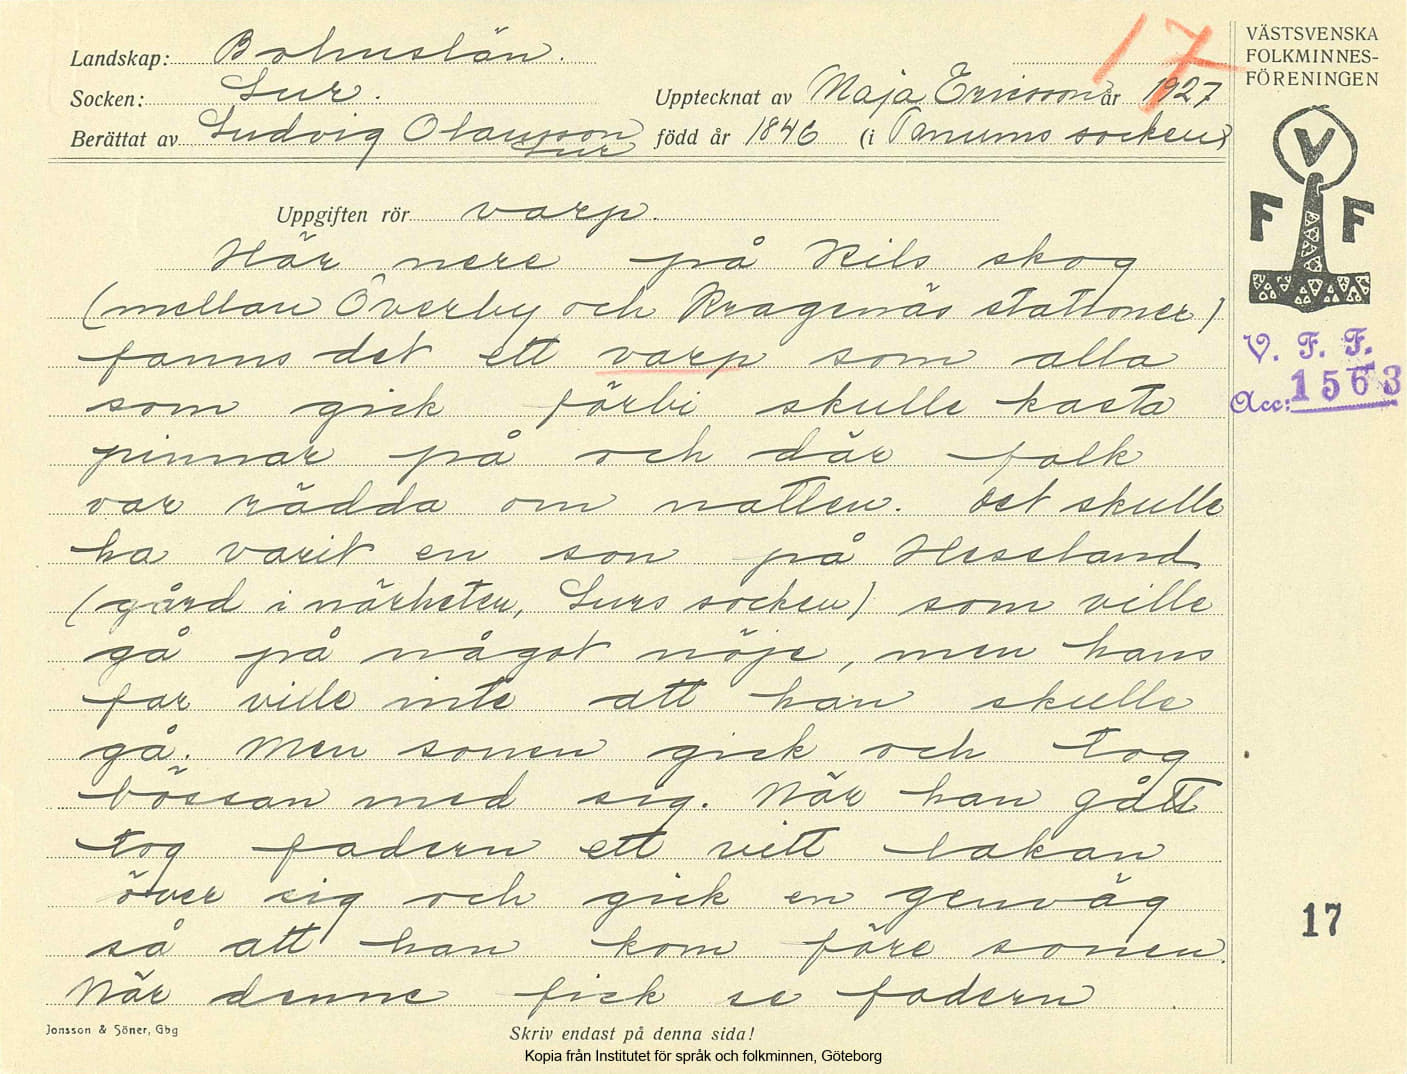 17
VÄSTSVENSKA
FOLKMINNES-
FÖRENINGEN
Landskap: Bohuslän.
Socken: Lur. Upptecknat av Maja Ericsson år 1927
Berättat av Ludvig Olausson Lur född år 1846 (i Tanums socken)
Uppgiften rör varp.
Här nere på Kils skog
(mellan Överby och Kragenäs stationer)
fanns det ett varp som alla
som gick förbi skulle kasta
pinnar på och där folk
var rädda om natten. Det skulle
ha varit en son på Hessland
(gård i närheten, Lurs socken) som ville
gå på något nöje, men hans
far ville inte att han skulle
gå. Men sonen gick och tog
bössan med sig. När han gått
tog fadern ett vitt lakan
över sig och gick en genväg
så att han kom före sonen.
När denne fick se fadern
V
F F
V. F. F.
Acc: 1563
17
Jonsson & Söner, Gbg
Skriv endast på denna sida!
Kopia från Institutet för språk och folkminnen, Göteborg